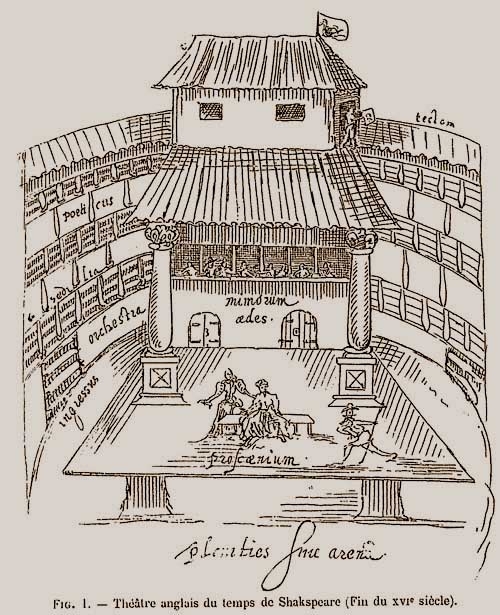 tectum
porticus
sedilia
orchestra
mimorum
ædes.
ingressus
proscænium.
planities sive arena
FIG. 1. — Théâtre anglais du temps de Shakspeare (Fin du XVIᵉ siècle).